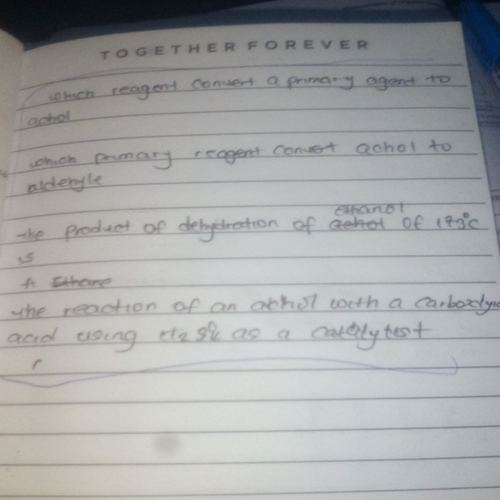 TOGETHER FOREVER
which reagent convert a primary agent to
achol
which primary reagent convert achol to
aldehyle
ethanol
the product of dehydration of achol of 173°C
is
A Ethane
the reaction of an achol with a carboxlyic
acid using as a catelytest